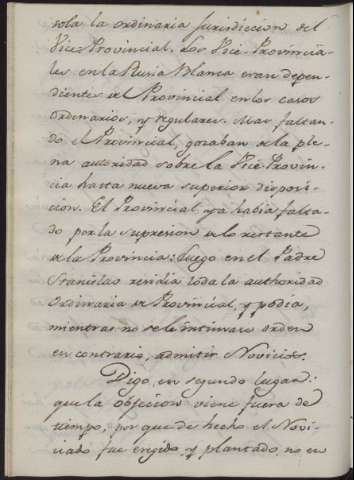 sola la ordinaria Jurisdiccion del
Vice-Provincial. Los Vice-Provincia-
les en la Rusia Blanca eran depen-
dientes del Provincial en los casos
Ordinarios, y regulares. Mas faltan-
do el Provincial, gozaban de la ple-
na autoridad sobre la Vice-Provin-
cia hasta nueva superior disposi-
cion. El Provincial ya habia falta-
do por la supresion de lo restante
de la Provincia: Luego en el Padre
Stanislao residia toda la authoridad
Ordinaria de Provincial, y podia,
mientras no se le intimara orden
en contrario, admitir Novicios.
Digo, en segundo lugar:
que la objecion viene fuera de
tiempo, por que de hecho el Novi-
ciado fue erigido, y plantado, no en